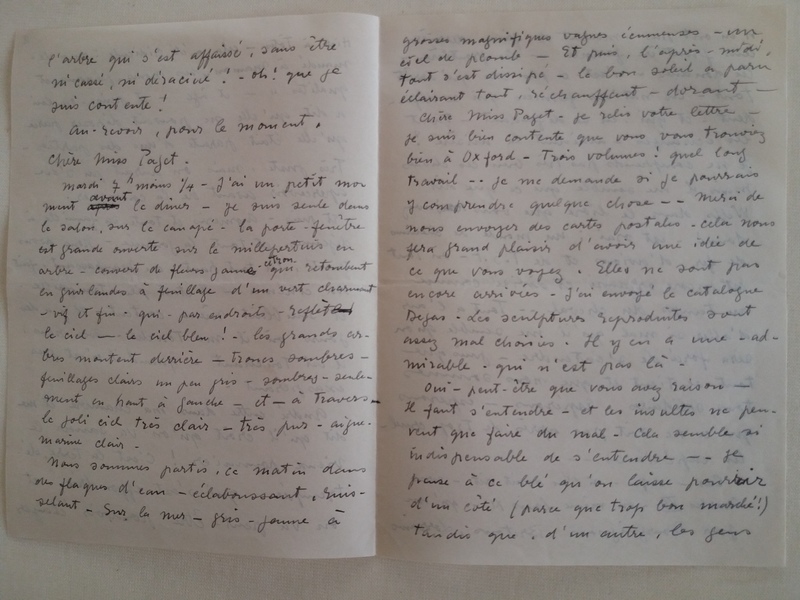 l'arbre qui s'est affaissé, sans être
ni cassé, ni déraciné ! - oh! que je
suis contente !
au-revoir, pour le moment.
Chère Miss Paget.
mardi 7h moins 1/4 - J'ai un petit mo-
ment avant le dîner - je suis seule dans
le salon, sur le canapé - la porte-fenêtre
est grande ouverte sur le millepertuis en
arbre - couvert de fleurs jaune-citron qui retombent
en guirlandes à feuillage d'un vert charmant
- vif et fin - qui - par endroits - reflète
le ciel — le ciel bleu ! - les grands ar-
bres montent derrière - troncs sombres -
feuillages clairs un peu gris - sombres - seule-
ment en haut à gauche - et - à travers -
le joli ciel très clair - très pur - aigue-
marine clair.
Nous sommes partis, ce matin dans
des flaques d'eau - éclaboussant, ruis-
selant - Sur la mer - gris-jaune à
grosses magnifiques vagues écumeuses - un
ciel de plomb - Et puis, l'après-midi,
tout s'est dissipé - le bon soleil a paru
éclairant tout, réchauffant - dorant —
Chère Miss Paget - je relis votre lettre -
je suis bien contente que vous vous trouviez
bien à Oxford - Trois volumes ! quel long
travail -- je me demande si je pourrais
y comprendre quelque chose -- Merci de
nous envoyer des cartes postales - cela nous
fera grand plaisir d'avoir une idée de
ce que vous voyez. Elles ne sont pas
encore arrivées - J'ai envoyé le catalogue
Degas - Les sculptures reproduites sont
assez mal choisies. Il y en a une - ad-
mirable - qui n'est pas là -
Oui - peut-être que vous avez raison —
Il faut s'entendre - et les insultes ne peu-
vent que faire du mal - Cela semble si
indispensable de s'entendre -- Je
pense à ce blé qu'on laisse pourrir
d'un côté (parce que trop bon marché !)
tandis que, d'un autre, les gens